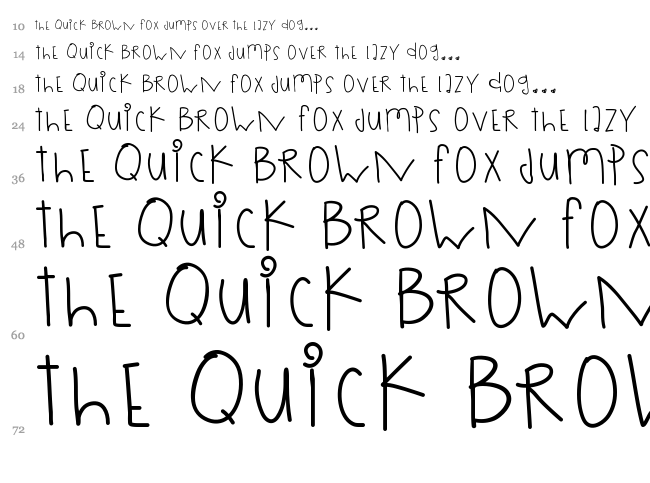 10 thE QUiCK BROWN fOX JumPS OVER thE lAZY dOg...
14 thE QUiCK BROWN fOX JumPS OVER thE lAZY dOg...
18 thE QUiCK BROWN fOX JumPS OVER thE lAZY dOg...
24 thE QUiCK BROWN fOX JumPS OVER thE lAZY
36 thE QUiCK BROWN fOX JumPS
48 thE QUiCK BROWN fOX
60 thE QUiCK BROWN
72 thE QUiCK BROW